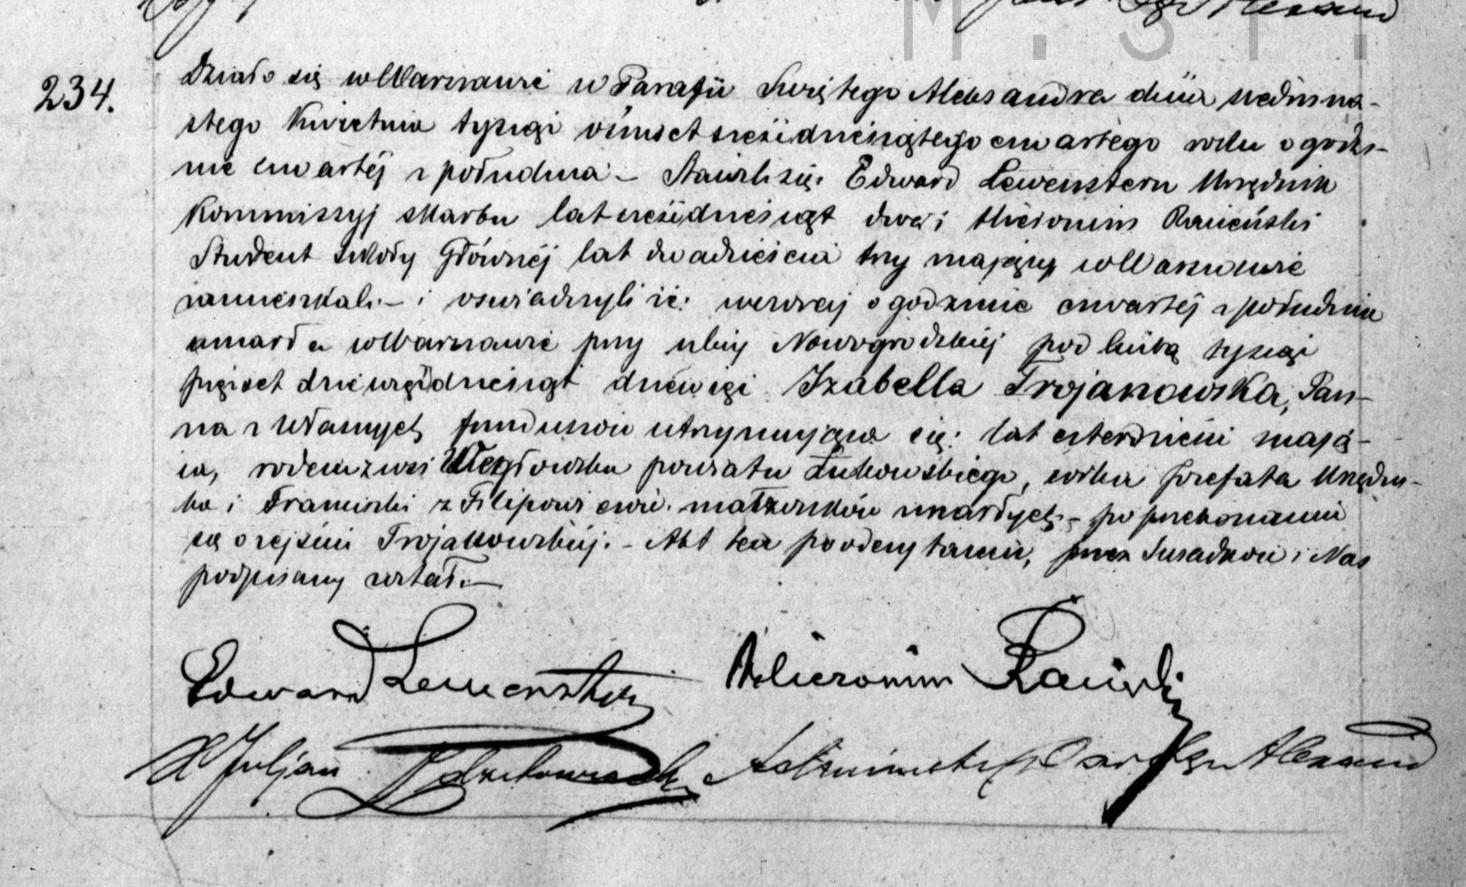 M. ST.
234.
Działo się w Warszawie w Parafii Świętego Aleksandra dnia siedmna-
stego Kwietnia tysiąc ośmset sześćdziesiątego czwartego roku o godzi-
nie czwartéj z południa – Stawili się: Edward Lewenstern Urzędnik
Kommissyj skarbu lat sześćdziesiąt dwa i Hieronim
Student Szkoły Głównéj lat dwadzieścia trzy mający w Warszawie
zamieszkali – i oświadczyli iż: wczoraj o godzinie czwartéj z południa
umarła w Warszawie przy ulicy Nowogrodzkiéj pod liczbą tysiąc
pięćset dziewięćdziesiąt dziewięć Izabella Trojanowska, Pan-
na z własnych funduszów utrzymująca się: lat czterdzieści mają-
ca, rodem z wsi powiatu Łukowskiego, córka Jozefata Urzędni-
ka i Franciszki z Filipowiczów małżonków zmarłych – po przekonaniu
się o zejściu Trojanowskiéj. – Akt ten po odczytaniu, przez Świadków i Nas
podpisany został. –
Edward Lewenstern Hieronim
X Juljan Administrator Par Sgo Alexand